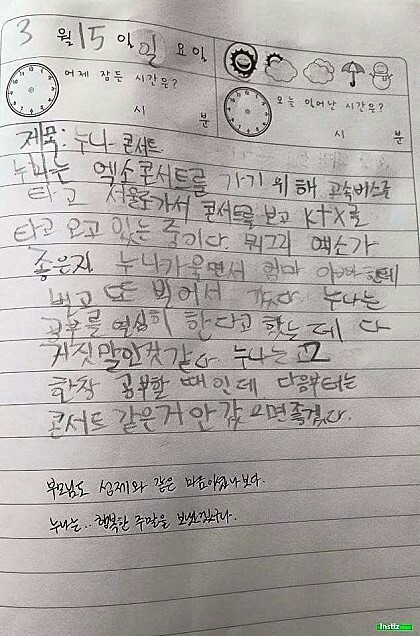 3 월 15 일 일 요일
어제 잠든 시간은?
오늘 일어난 시간은?
시 분
시 분
제목: 누나 콘서트
누나는 엑소 콘서트를 가기 위해 고속버스를
타고 서울가서 콘서트를 보고 ktx를
타고 오고 있는 중이다. 뭐그리 엑소가
좋은지 누나가 울면서 엄마 아빠한테
빌고 또 빌어서 갔다. 누나는
공부를 열심히 한다고 했는데 다
거짓말인것 같다. 누나는 고2
한창 공부할 때인데 다음부터는
콘서트 같은거 안 갔으면 좋겠다.
부모님도 성제와 같은 마음이셨나보다.
누나는.. 행복한 주말을 보냈겠구나.
Instiz